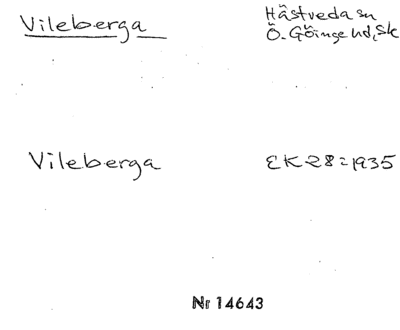 Vileberga
Hästveda sn
Ö. Göinge hd, Sk
Vileberga
EK 28 = 1935
Nr 14643